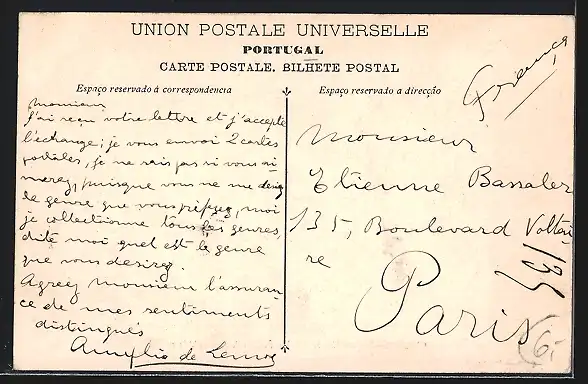 UNION POSTALE UNIVERSELLE
PORTUGAL
CARTE POSTALE. BILHETE POSTAL
Espaço reservado á correspondencia
Espaço reservado a direcção
Monsieur
J'ai reçu votre lettre et j'accepte
l'échange; je vous envoi 2 cartes
postales, je ne sais pas si vous ai-
merez, puisque vous ne me
le genre que vous préferez, moi
je collectionne tous les genres,
dite moi quel est le genre
que vous desirez.
Agréez monsieur l'assuran-
ce de mes sentiments
distingués
de Lemos
França
Monsieur
Etienne Bassaler
135, Boulevard Voltai-
re
Paris
6,-